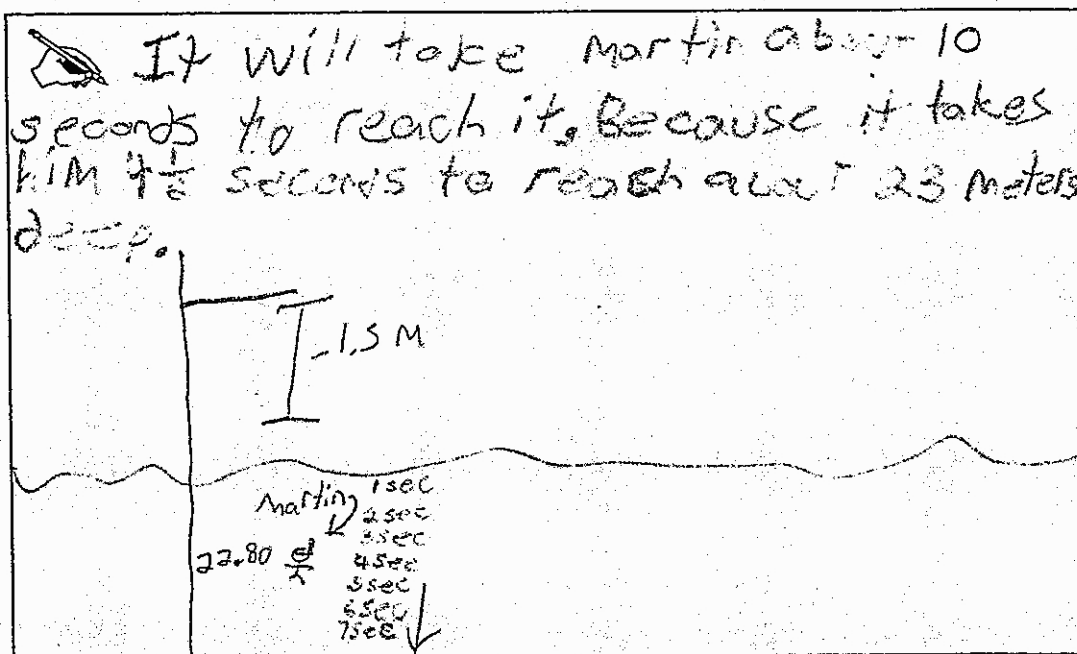 It will take Martin about 10
seconds to reach it. Because it takes
him 4 1/2 seconds to reach about 23 meters
deep.
-1.5 M
1 sec
Martin 2 sec
3 sec
22.80 4 sec
5 sec
6 sec
7 sec